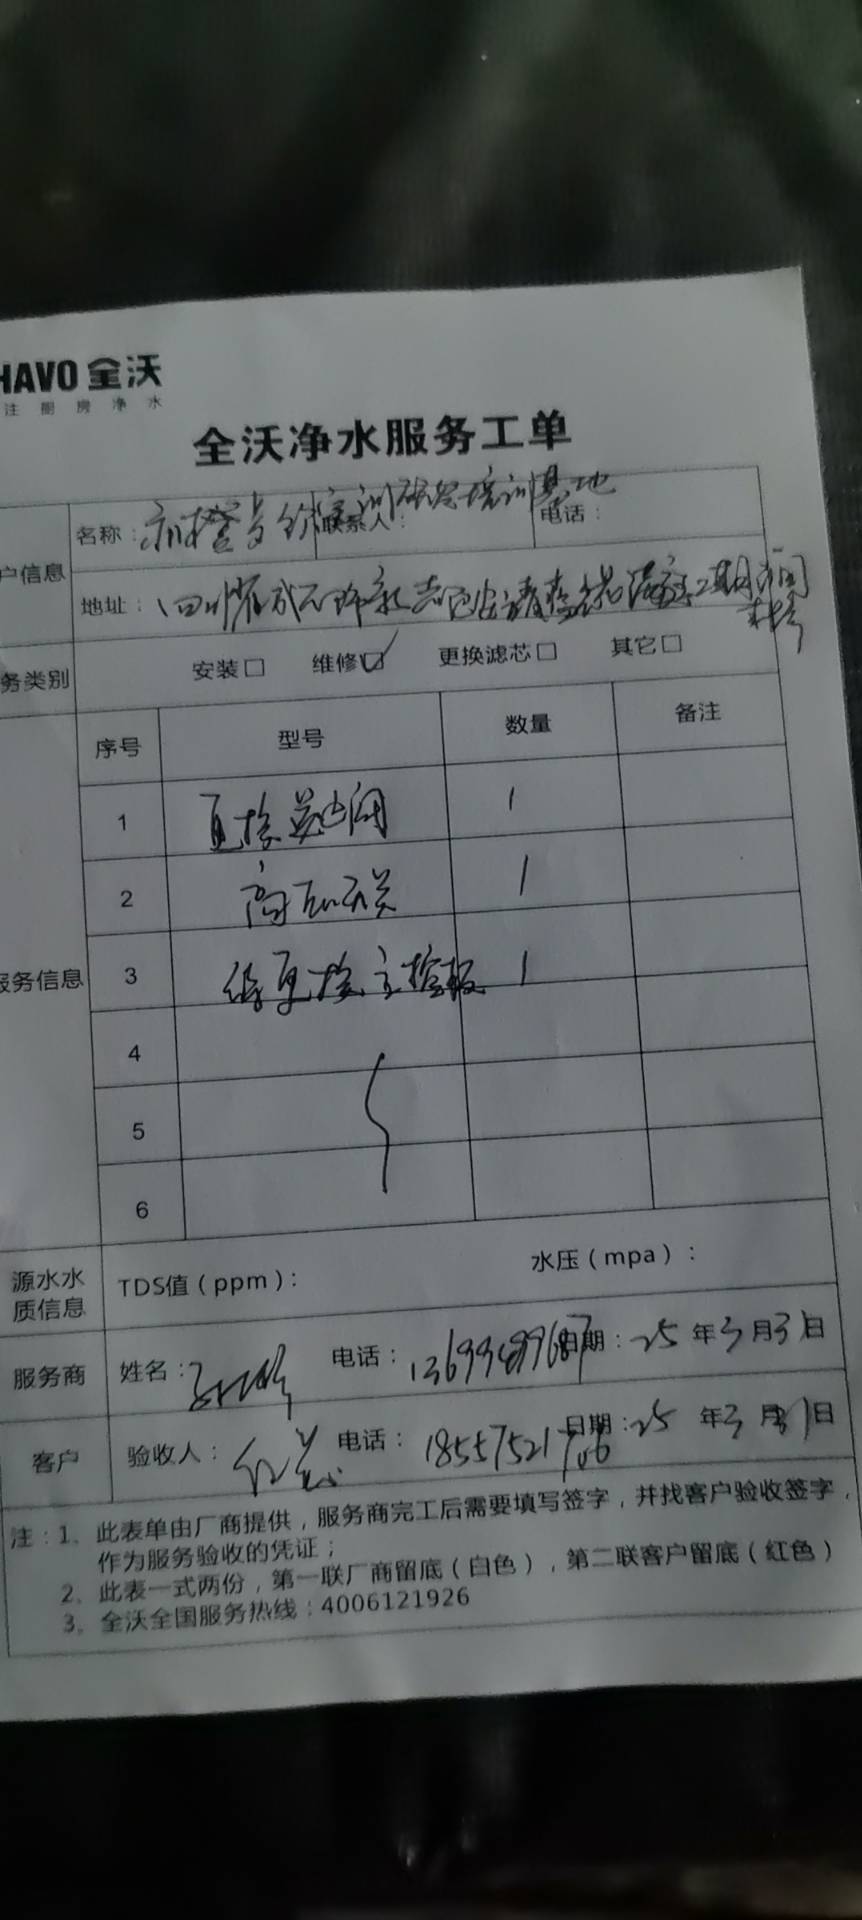 HAVO 全沃
注厨房净水
全沃净水服务工单
户信息
名称： 培训基地
联系人：
电话：
地址：四川省成都市
务类别
安装□ 维修☑ 更换滤芯□ 其它□
序号 型号 数量 备注
服务信息
1 直接 1
2 高压开关 1
3 待更换主控板 1
4
5
6
源水水质信息
TDS值（ppm）：
水压（mpa）：
服务商 姓名： 电话： 日期：25年3月31日
客户 验收人： 电话：18557521706 日期：25年3月31日
注：1、此表单由厂商提供，服务商完工后需要填写签字，并找客户验收签字，
作为服务验收的凭证；
2、此表一式两份，第一联厂商留底（白色），第二联客户留底（红色）
3、全沃全国服务热线：4006121926